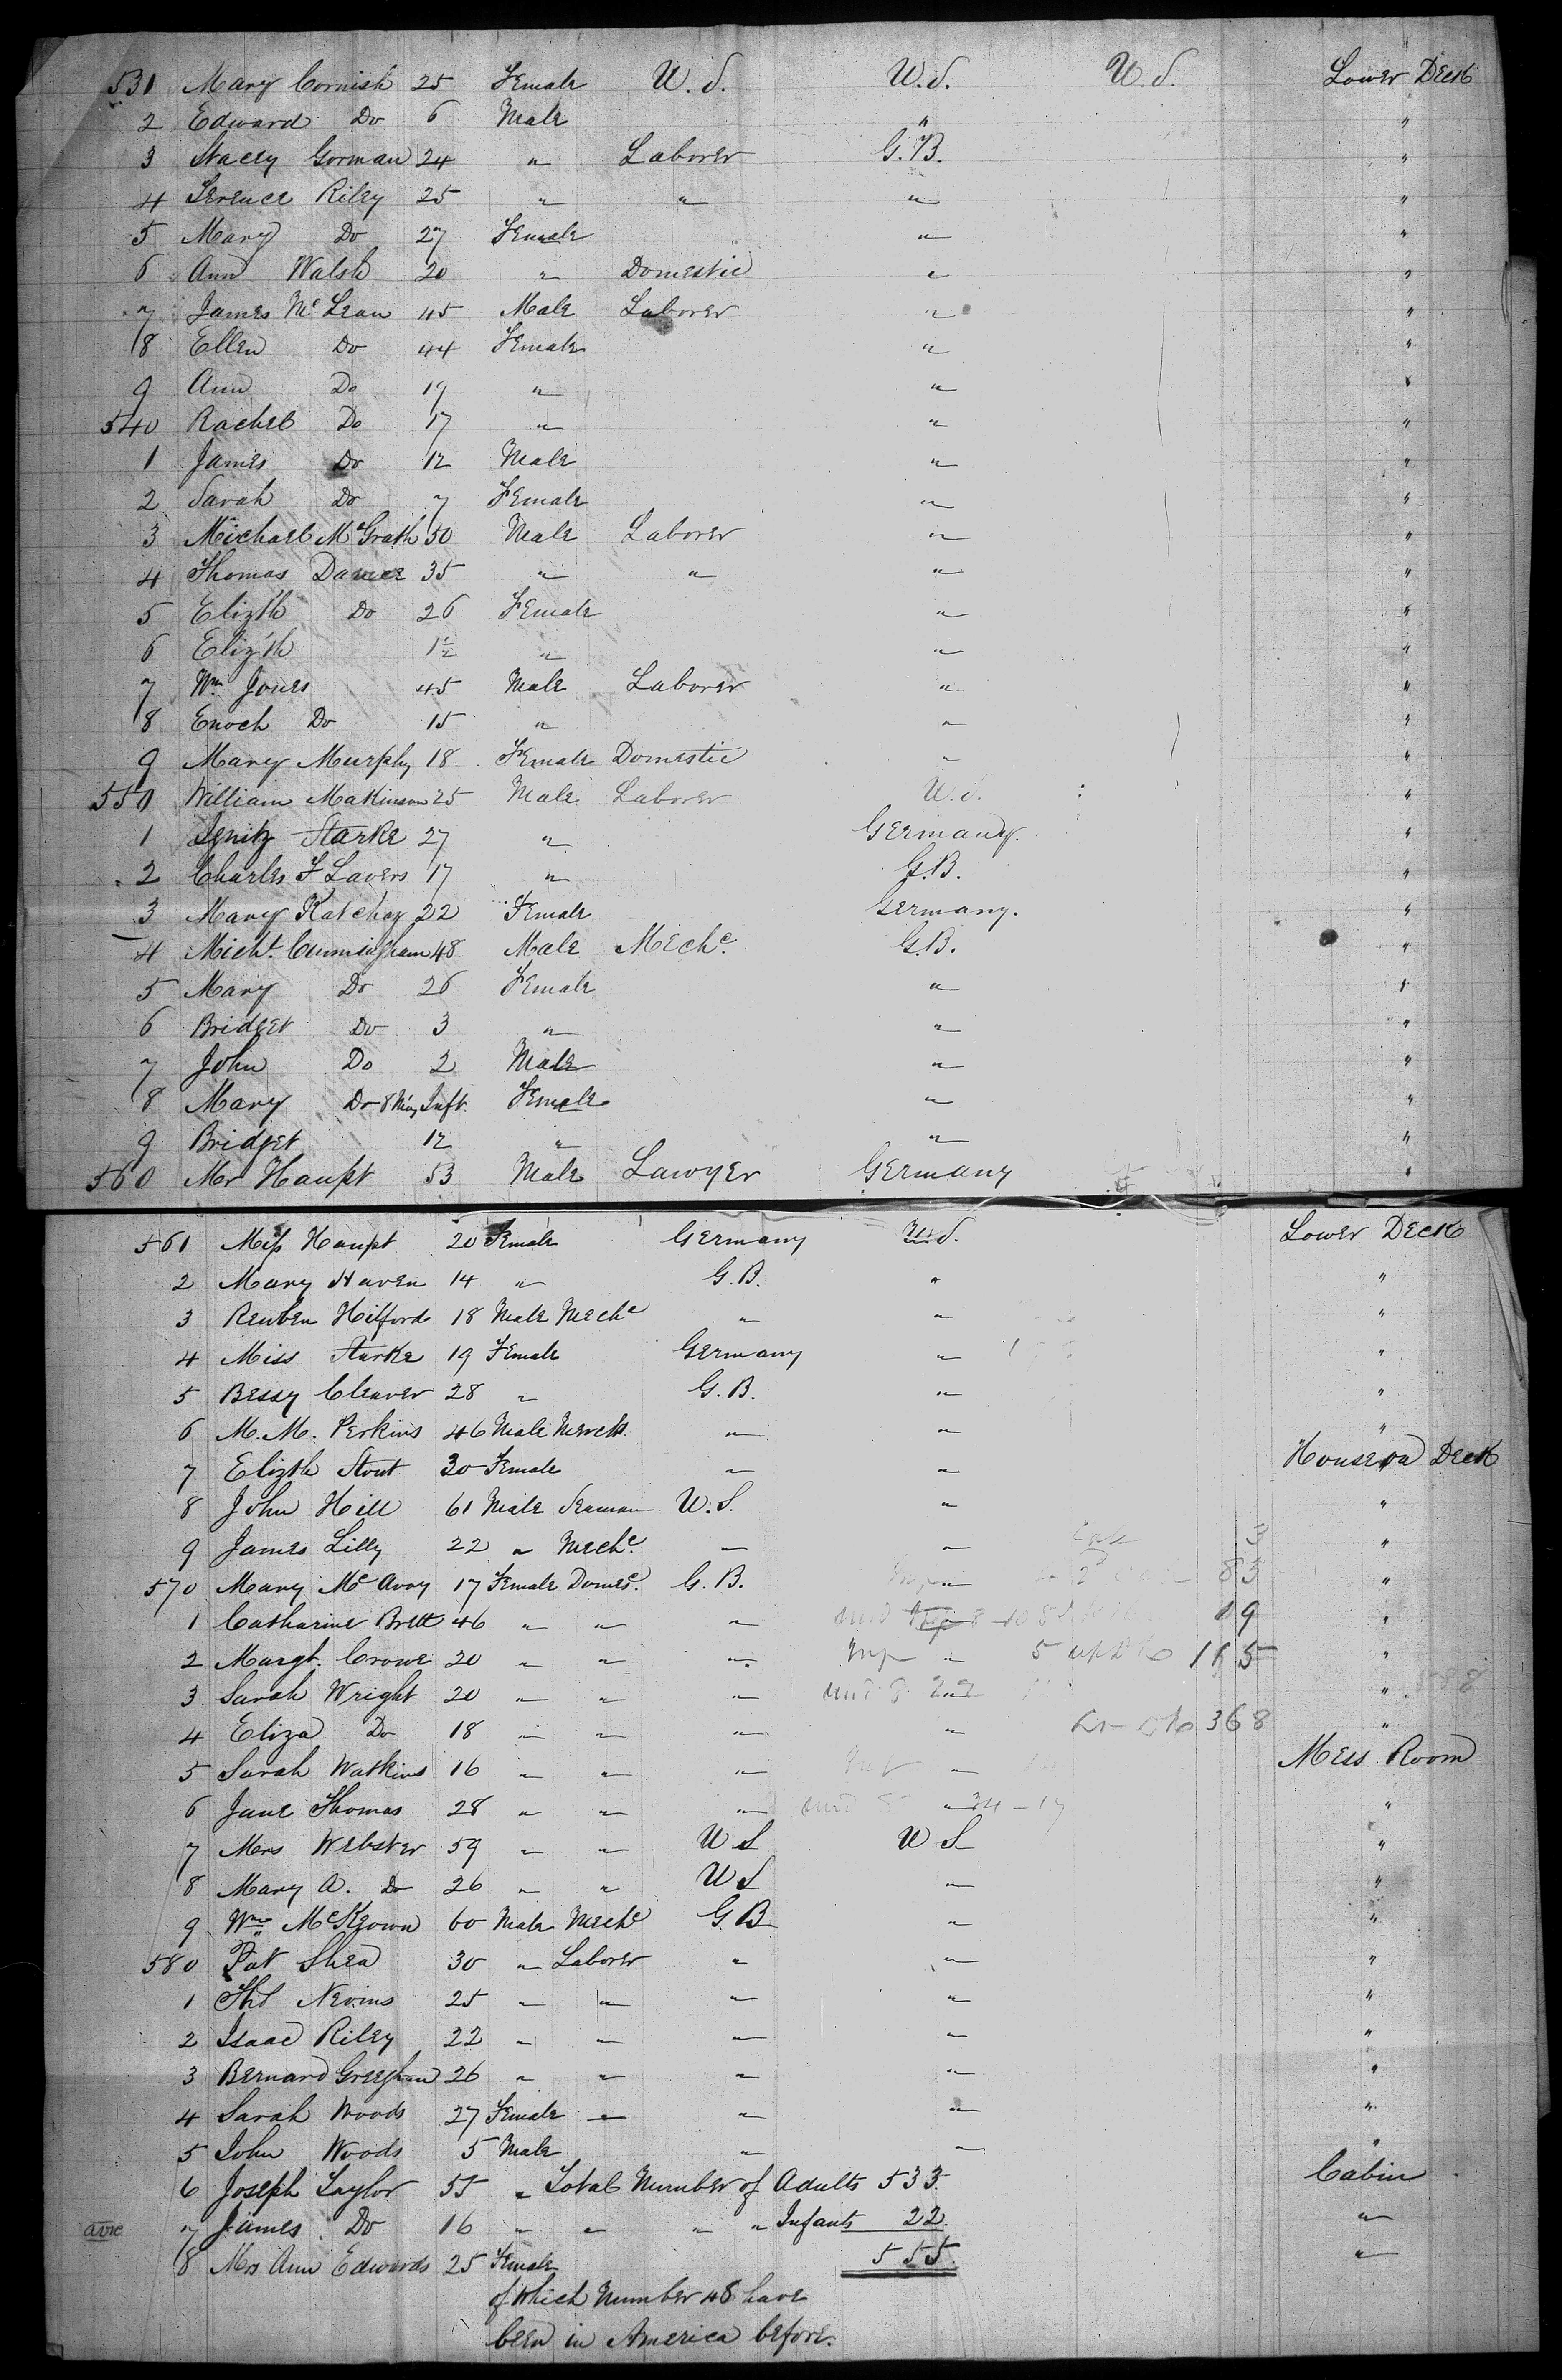 531 Mary Cornish 25 Female U.S. U.S. U.S. Lower Deck
2 Edward Do 6 Male " "
3 Stacey Gorman 24 " Laborer G.B. "
4 Terence Riley 25 " " " "
5 Mary Do 27 Female " "
6 Ann Walsh 20 " Domestic " "
7 James McLean 45 Male Laborer " "
8 Ellen Do 44 Female " "
9 Ann Do 19 " " "
540 Rachel Do 17 " " "
1 James Do 12 Male " "
2 Sarah Do 7 Female " "
3 Michael McGrath 50 Male Laborer " "
4 Thomas 35 " " " "
5 Elizth Do 26 Female " "
6 Elizth 1½ " " "
7 Wm Jones 45 Male Laborer " "
8 Enoch Do 15 " " "
9 Mary Murphy 18 Female Domestic " "
550 William Makinson 25 Male Laborer U.S. "
1 Starke 27 " Germany. "
2 Charles F Lavers 17 " G.B. "
3 Mary Katchay 22 Female Germany. "
4 Michl. Cunningham 48 Male Mechc. G.B. "
5 Mary Do 26 Female " "
6 Bridget Do 3 " " "
7 John Do 2 Male " "
8 Mary Do 8 Mos Inft. Female " "
9 Bridget 12 " " "
560 Mr Haupt 53 Male Lawyer Germany "
561 Miss Haupt 20 Female Germany U.S. Lower Deck
2 Mary Haven 14 " G.B. " "
3 Reuben Hilford 18 Male Mechc " " "
4 Miss Starke 19 Female Germany " "
5 Bessy Cleaver 28 " G.B. " "
6 M.M. Perkins 46 Male Merch. " " "
7 Elizth Stout 30 Female " " House on Deck
8 John Hill 61 Male Seaman U.S. " "
9 James Lilly 22 " Mechc. " " 3 "
570 Mary McAvoy 17 Female Domesc. G.B. " 83 "
1 Catharine Brett 46 " " " 19 "
2 Margt. Crowe 20 " " " " 5 165 "
3 Sarah Wright 20 " " " 22 "
4 Eliza Do 18 " " " " 368 "
5 Sarah Watkins 16 " " " " Mess Room
6 Jane Thomas 28 " " " " 34 - 17 "
7 Mrs Webster 59 " " U S U S "
8 Mary A. Do 26 " " U S " "
9 Wm McKeown 60 Male Mechc G B " "
580 Pat Shea 30 " Laborer " " "
1 Ths Nevins 25 " " " " "
2 Isaac Riley 22 " " " " "
3 Bernard Greeghan 26 " " " " "
4 Sarah Woods 27 Female " " " "
5 John Woods 5 Male " " "
6 Joseph Taylor 55 " Total Number of Adults 533 Cabin
7 James Do 16 " " " " Infants 22 "
8 Mrs Ann Edwards 25 Female 555. "
of which Number 48 have
been in America before.